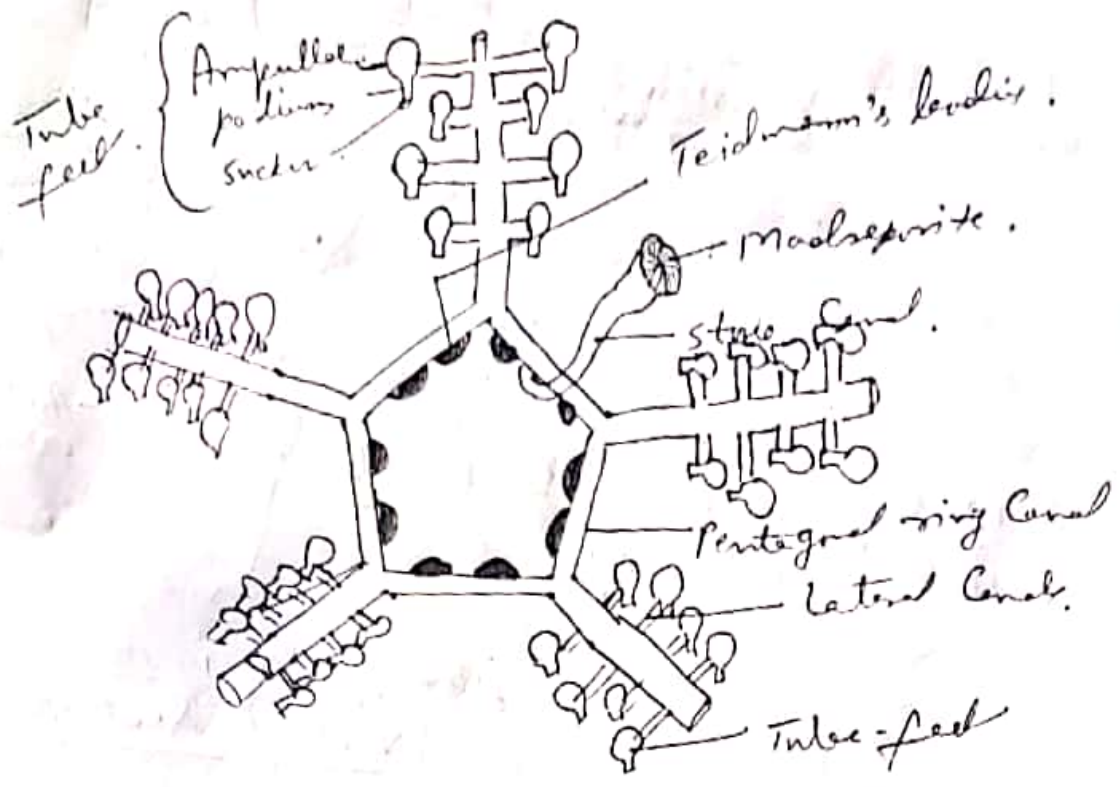 Tube
feet.
Ampullae
podium
sucker
Teidmann's bodies.
Madreporite.
stone Canal.
Pentagonal ring Canal
Lateral Canals.
Tube-feet